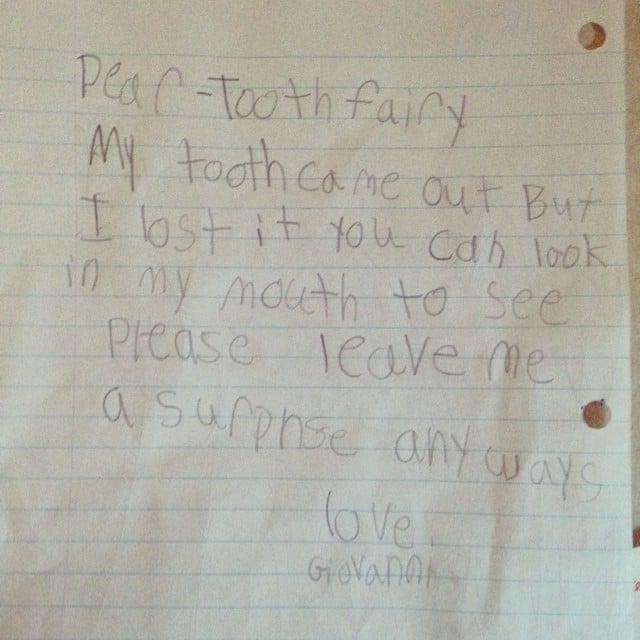 Dear-Tooth fairy
My tooth came out But
I lost it you can look
in my mouth to see
Please leave me
a surprise any ways
love,
Giovanni